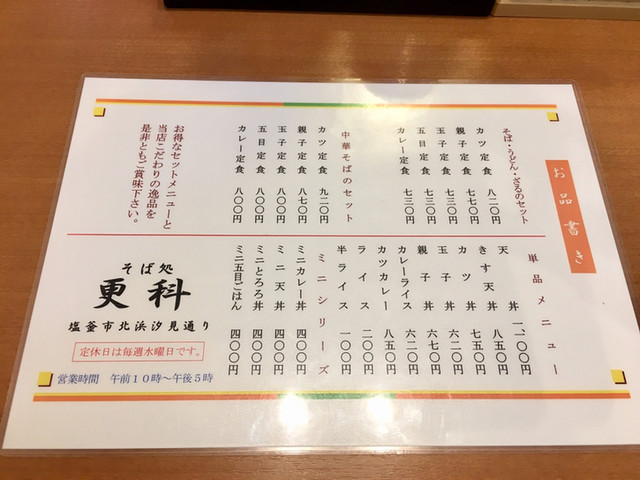 お品書き
そば・うどん・ざるのセット
カツ定食 八二〇円
親子定食 七七〇円
玉子定食 七三〇円
五目定食 七三〇円
カレー定食 七三〇円
中華そばのセット
カツ定食 九二〇円
親子定食 八七〇円
玉子定食 八〇〇円
五目定食 八〇〇円
カレー定食 八〇〇円
お得なセットメニューと
当店こだわりの逸品を
是非ともご賞味下さい。
単品メニュー
天丼
きす天丼 八五〇円
カツ丼 七五〇円
玉子丼 六二〇円
親子丼 六七〇円
カレーライス 六二〇円
カツカレー 八五〇円
ライス 二〇〇円
半ライス 一〇〇円
ミニシリーズ
ミニカレー丼 四〇〇円
ミニ天丼 四〇〇円
ミニとろろ丼 四〇〇円
ミニ五目ごはん 四〇〇円
そば処
更科
塩釜市北浜汐見通り
定休日は毎週水曜日です。
営業時間 午前10時～午後5時